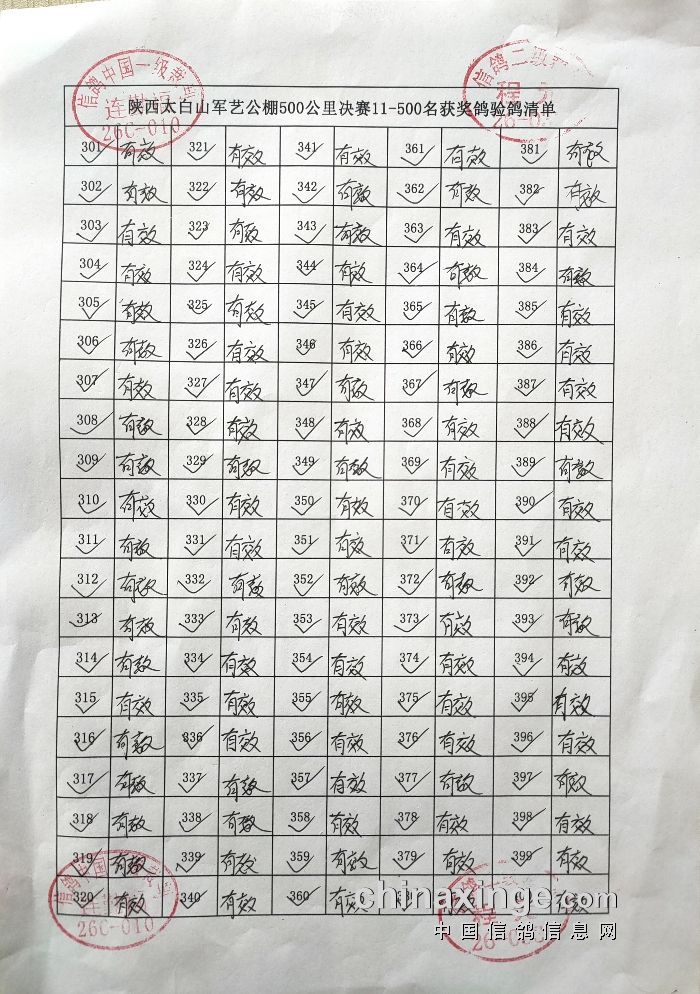 信鸽中国一级裁
连
26C-010
信鸽二级
程
26-0
陕西太白山军艺公棚500公里决赛11-500名获奖鸽验鸽清单
301 有效 321 有效 341 有效 361 有效 381 有效
302 有效 322 有效 342 有效 362 有效 382 有效
303 有效 323 有效 343 有效 363 有效 383 有效
304 有效 324 有效 344 有效 364 有效 384 有效
305 有效 325 有效 345 有效 365 有效 385 有效
306 有效 326 有效 346 有效 366 有效 386 有效
307 有效 327 有效 347 有效 367 有效 387 有效
308 有效 328 有效 348 有效 368 有效 388 有效
309 有效 329 有效 349 有效 369 有效 389 有效
310 有效 330 有效 350 有效 370 有效 390 有效
311 有效 331 有效 351 有效 371 有效 391 有效
312 有效 332 有效 352 有效 372 有效 392 有效
313 有效 333 有效 353 有效 373 有效 393 有效
314 有效 334 有效 354 有效 374 有效 394 有效
315 有效 335 有效 355 有效 375 有效 395 有效
316 有效 336 有效 356 有效 376 有效 396 有效
317 有效 337 有效 357 有效 377 有效 397 有效
318 有效 338 有效 358 有效 378 有效 398 有效
319 有效 339 有效 359 有效 379 有效 399 有效
320 有效 340 有效 360 有效 有效
信鸽中国
26C-010
程
chinaxinge.com
中国信鸽信息网